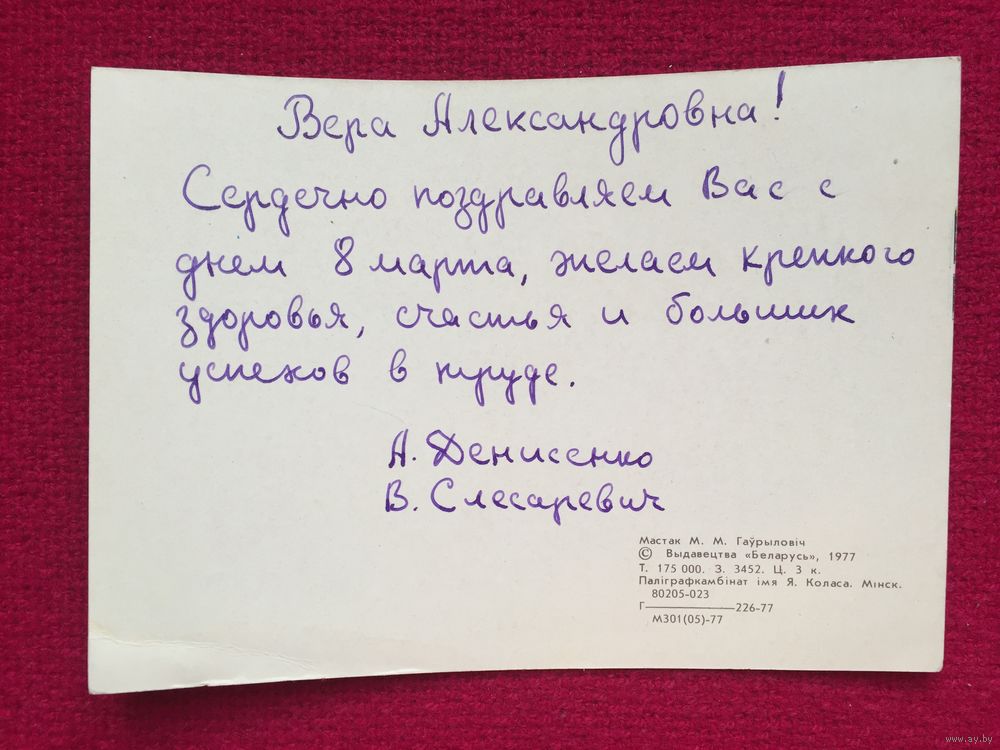 Вера Александровна!
Сердечно поздравляем Вас с
днем 8 марта, желаем крепкого
здоровья, счастья и больших
успехов в труде.
А. Денисенко
В. Слесаревич
Мастак М. М. Гаўрыловіч
© Выдавецтва «Беларусь», 1977
Т. 175 000. З. 3452. Ц. 3 к.
Паліграфкамбінат імя Я. Коласа. Мінск.
80205-023
Г————226-77
М301(05)-77
www.ay.by